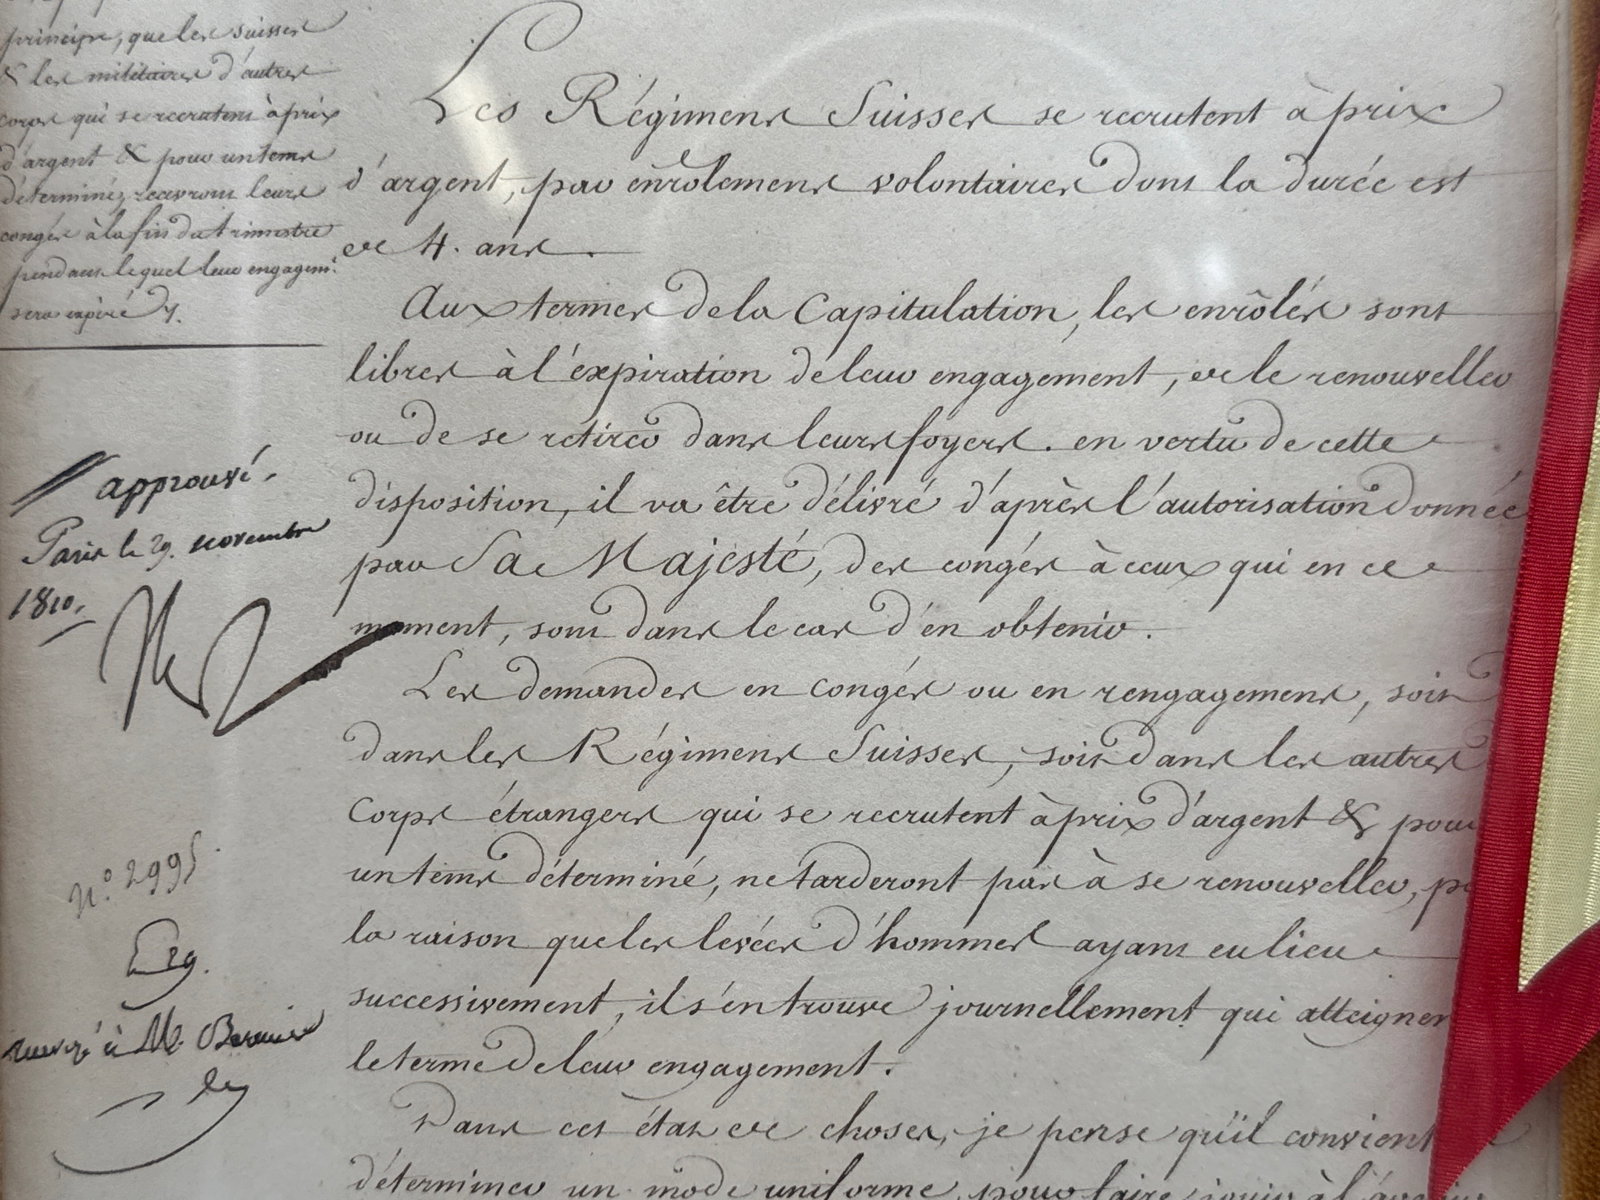 principe, que les suisses
& les militaires d'autres
corps qui se recrutent à prix
d'argent & pour un tems
déterminé, recevront leurs
congés à la fin du trimestre
pendant lequel leur engagemt.
sera expiré
approuvé.
Paris le 29. novembre
1810.
N.º 2995.
renvoyé à M.
Les Régimens Suisses se recrutent à prix
d'argent, par enrôlemens volontaires dont la durée est
de 4. ans.
Aux termes de la Capitulation, les enrôlés sont
libres à l'expiration de leur engagement, de le renouveller
ou de se retirer dans leurs foyers. en vertu de cette
disposition, il va être délivré d'après l'autorisation donnée
par Sa Majesté, des congés à ceux qui en ce
moment, sont dans le cas d'en obtenir.
Les demandes en congés ou en rengagemens, soit
dans les Régimens Suisses, soit dans les autres
Corps étrangers qui se recrutent à prix d'argent & pour
un tems déterminé, ne tarderont pas à se renouveller,
la raison que les levées d'hommes ayant eu lieu
successivement, il s'en trouve journellement qui atteignen
le terme de leur engagement.
Dans cet état de choses, je pense qu'il convient
déterminer un mode uniforme, pour faire jouir à l'avenir